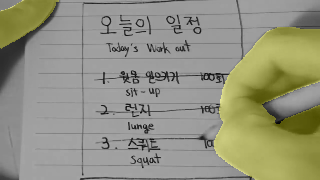 오늘의 일정
Today's Work out
1. 윗몸 일으키기 100회
sit-up
2. 런지 100
lunge
3. 스쿼트 10
squat